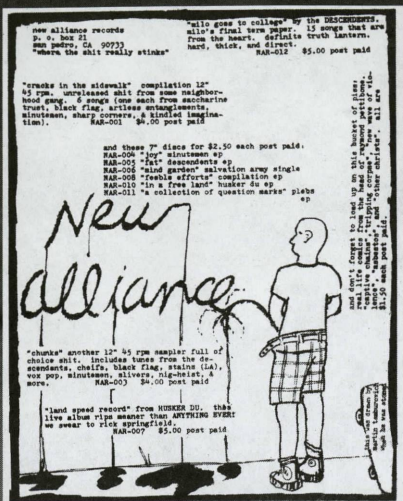 new alliance records
p. o. box 21
san pedro, CA 90733
"where the shit really stinks"
"milo goes to college" by the DESCENDENTS.
milo's final term paper. 15 songs that are
from the heart. definite truth lantern.
hard, thick, and direct.
NAR-012 $5.00 post paid
"cracks in the sidewalk" compilation 12"
45 rpm. unreleased shit from some neighbor-
hood gang. 6 songs (one each from saccharine
trust, black flag, artless entanglements,
minutemen, sharp corners, & kindled imagina-
tion). NAR-001 $4.00 post paid
and these 7" discs for $2.50 each post paid:
NAR-004 "joy" minutemen ep
NAR-005 "fat" descendents ep
NAR-006 "mind garden" salvation army single
NAR-008 "feeble efforts" compilation ep
NAR-010 "in a free land" husker du ep
NAR-011 "a collection of question marks" plebs
ep
and don't forget to load up on this bucket of piss.
real life comics from the head of raymond pettibone.
"captive chains", "tripping corpse", "new wave of vio-
lence", "asbestos", and "other christs". all are
$1.50 each post paid.
New
alliance
"chunks" another 12" 45 rpm sampler full of
choice shit. includes tunes from the de-
scendents, cheifs, black flag, stains (LA),
vox pop, minutemen, slivers, nig-heist, &
more. NAR-003 $4.00 post paid
"land speed record" from HUSKER DU. this
live album rips meaner than ANYTHING EVER!
we swear to rick springfield.
NAR-007 $5.00 post paid
this was drawn by
martin tamburovich
when he was stoned